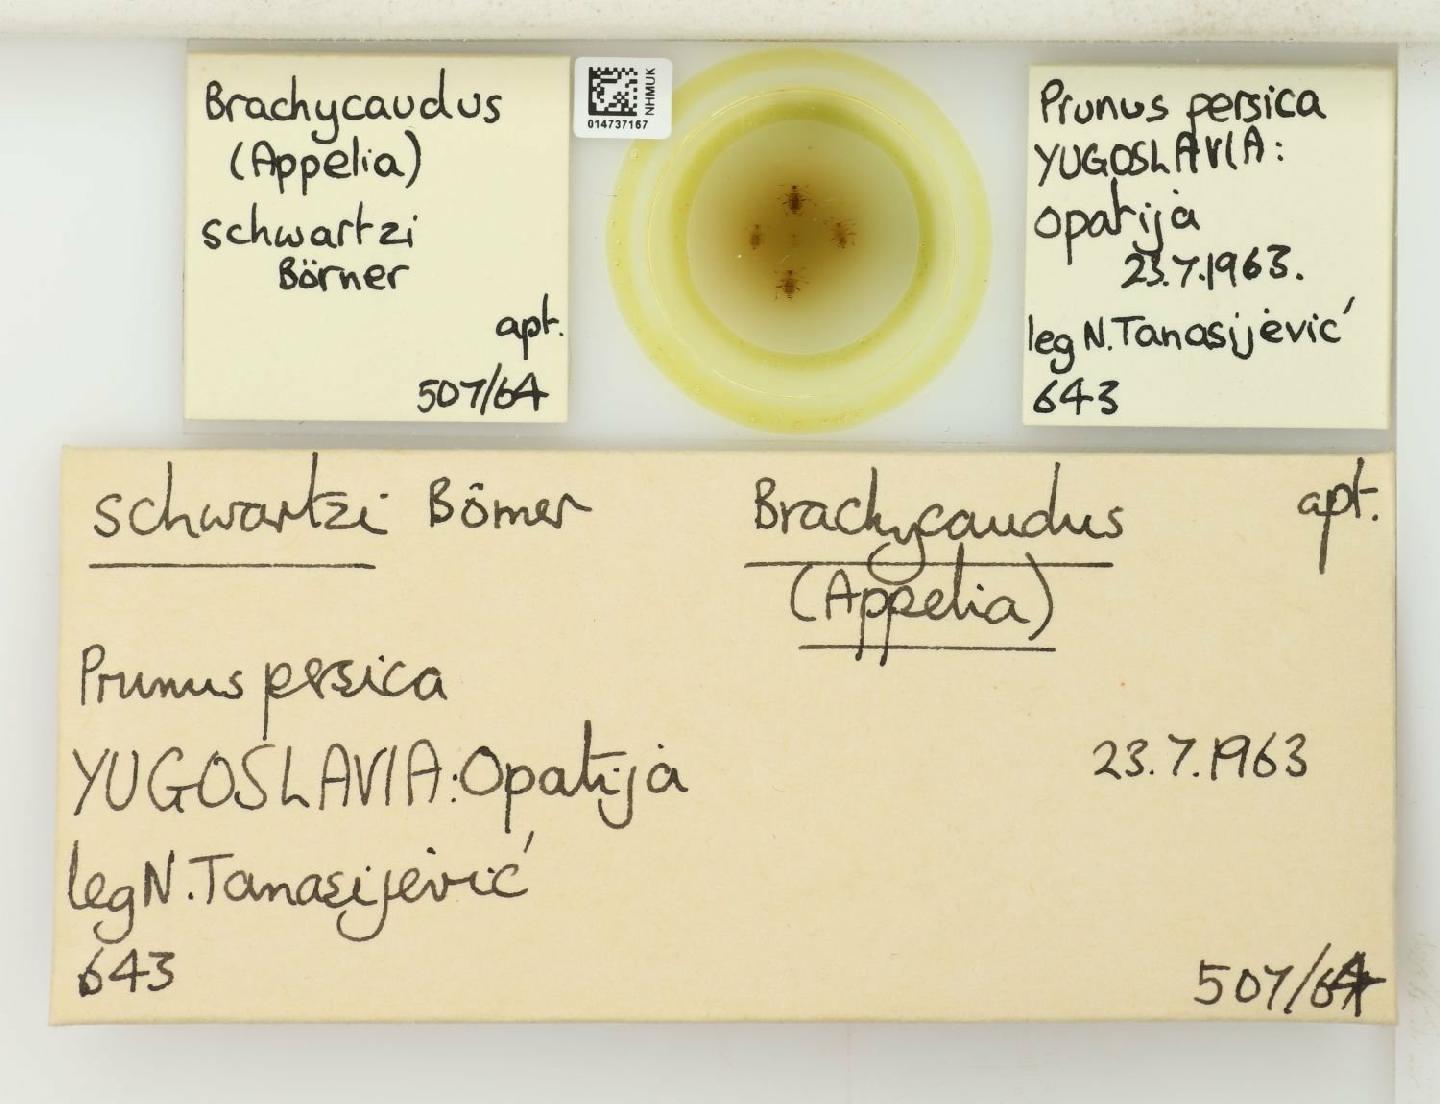 Brachycaudus
(Appelia)
schwartzi
Börner
apt.
507/64
NHMUK
014737167
Prunus persica
YUGOSLAVIA:
opatija
23.7.1963.
leg N. Tanasijević
643
schwartzi Börner
Brachycaudus
(Appelia)
apt.
Prunus persica
YUGOSLAVIA: Opatija
23.7.1963
leg N. Tanasijević
643
507/64